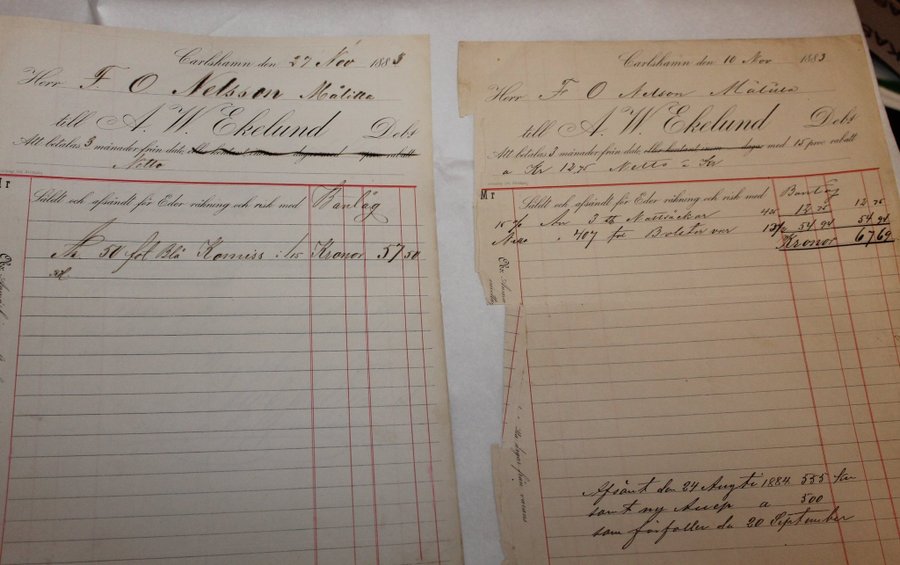 Carlshamn den 27 Nov 1883
Herr F. O Nelsson Målilla
till A. W. Ekelund Debt
Att betalas 3 månader från dato, eller kontant inom dagar med proc rabatt
Netto
Mr
Såldt och afsändt för Eder räkning och risk med Banlåg
50 fol Blå Komiss : 115 Kronor 57 50
Carlshamn den 10 Nov 1883
Herr F O Nelson Målilla
till A. W. Ekelund Debt
Att betalas 3 månader från dato, eller kontant inom dagar med 15 proc rabatt
a Kr 12.75 Netto a Kr
Mr
Såldt och afsändt för Eder räkning och risk med Banlåg
3 st 425 12 75 12 75
407 54 94 54 94
Kronor 67 69
Afsänt den 24 Augti 1884 555 kr
samt ny Accep a 500
som förfaller du 20 September